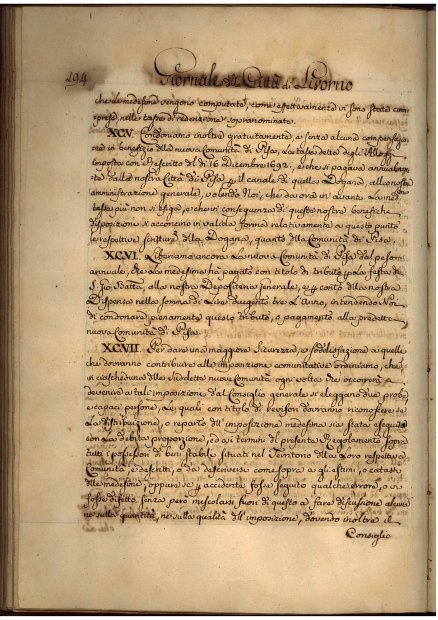 194
Giornale di Città di Livorno
che le medesime vengono computate, come effettivamente vi sono state com-
prese nelle tasse di redenzione sopranominate.
XCV. Condoniamo inoltre gratuitamente, e senza alcuna compensazio
ne in benefizio della nuova Comunità di Pisa, la tassa detta degli
imposta con Rescritto del dì 16 Dicembre 1692. e che si pagava annualmen
te dalla nostra Città di Pisa p il canale di quella Dogana, alla nostra
amministrazione generale, volendo Noi, che da ora in avanti la med
tassa più non si esiga, e che in conseguenza di questa nostra benefica
disposizione si acconcino in valida forma relativamente a questo punto
le respettive scritture della Dogana, quanto della Comunità di Pisa.
XCVI. Liberiamo ancora la nuova Comunità di Pisa dal peso
annuale, che la medesima ha pagato con titolo di tributo p la festa di
S. Gio Batta, alla nostra Depositeria generale, e p conto della nostra
Dispensa nella somma di Lire dugento tre l'Anno, intendendo Noi
di condonare pienamente questo tributo, o pagamento alla predetta
nuova Comunità di Pisa.
XCVII. Per dare una maggiore sicurezza, e soddisfazione a quelli
che dovranno contribuire alle imposizioni comunitative ordiniamo, che
in ciascheduna delle suddette nuove Comunità ogni volta che occorrerà
devenire a tali imposizioni dal Consiglio generale si eleggano due probe,
e capaci persone, le quali con titolo di revisori dovranno riconoscere se
la distribuzione, o reparto dell'imposizione medesima sia stato eseguito
con la debita proporzione, ed a i termini del presente Regolamento sopra
tutti i possessori di beni stabili situati nel Territorio della loro respettiva
Comunità, e descritti, o da descriversi come sopra a gli estimi, o catasti
delle medesime; oppure se p accidente fosse seguito qualche errore, o vi
fosse difetto senza però mescolarsi fuori di questo a fare discussione alcuna
ne sulla quantità, ne sulla qualità dell'imposizione, dovendo inoltre il
Consiglio